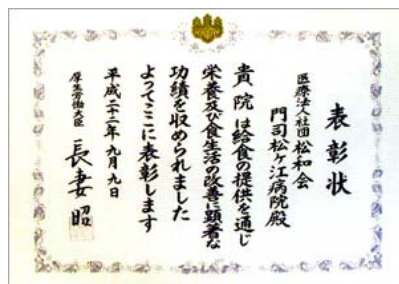 表彰状
医療法人社団松和会
門司松ヶ江病院殿
貴院は給食の提供を通じ
栄養及び食生活の改善に顕著な
功績を収められました
よってここに表彰します
平成二十二年九月九日
厚生労働大臣 長妻昭